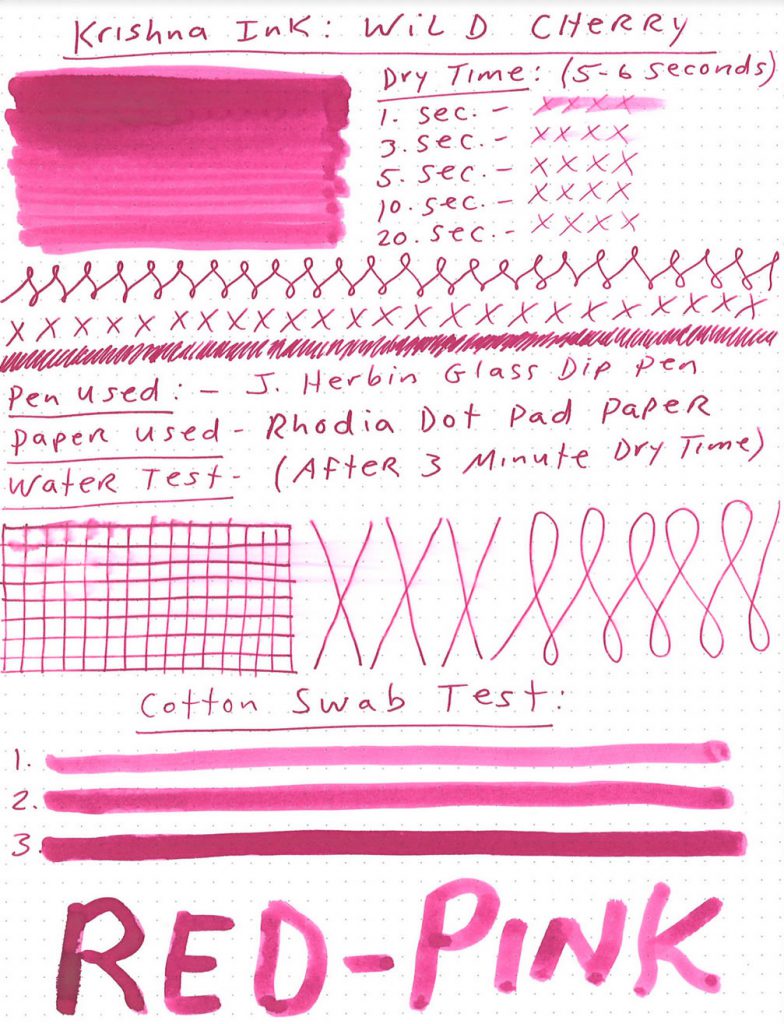 Krishna Ink: Wild Cherry
Dry Time: (5-6 seconds)
1. sec. - x x x x
3. sec. - x x x x
5. sec. - x x x x
10. sec. - x x x x
20. sec. - x x x x
x x x x x x x x x x x x x x x x x x x x x x x x
Pen used: - J. Herbin Glass Dip Pen
Paper used - Rhodia Dot Pad Paper
Water Test - (After 3 Minute Dry Time)
X X X
Cotton Swab Test:
1.
2.
3.
RED-PINK